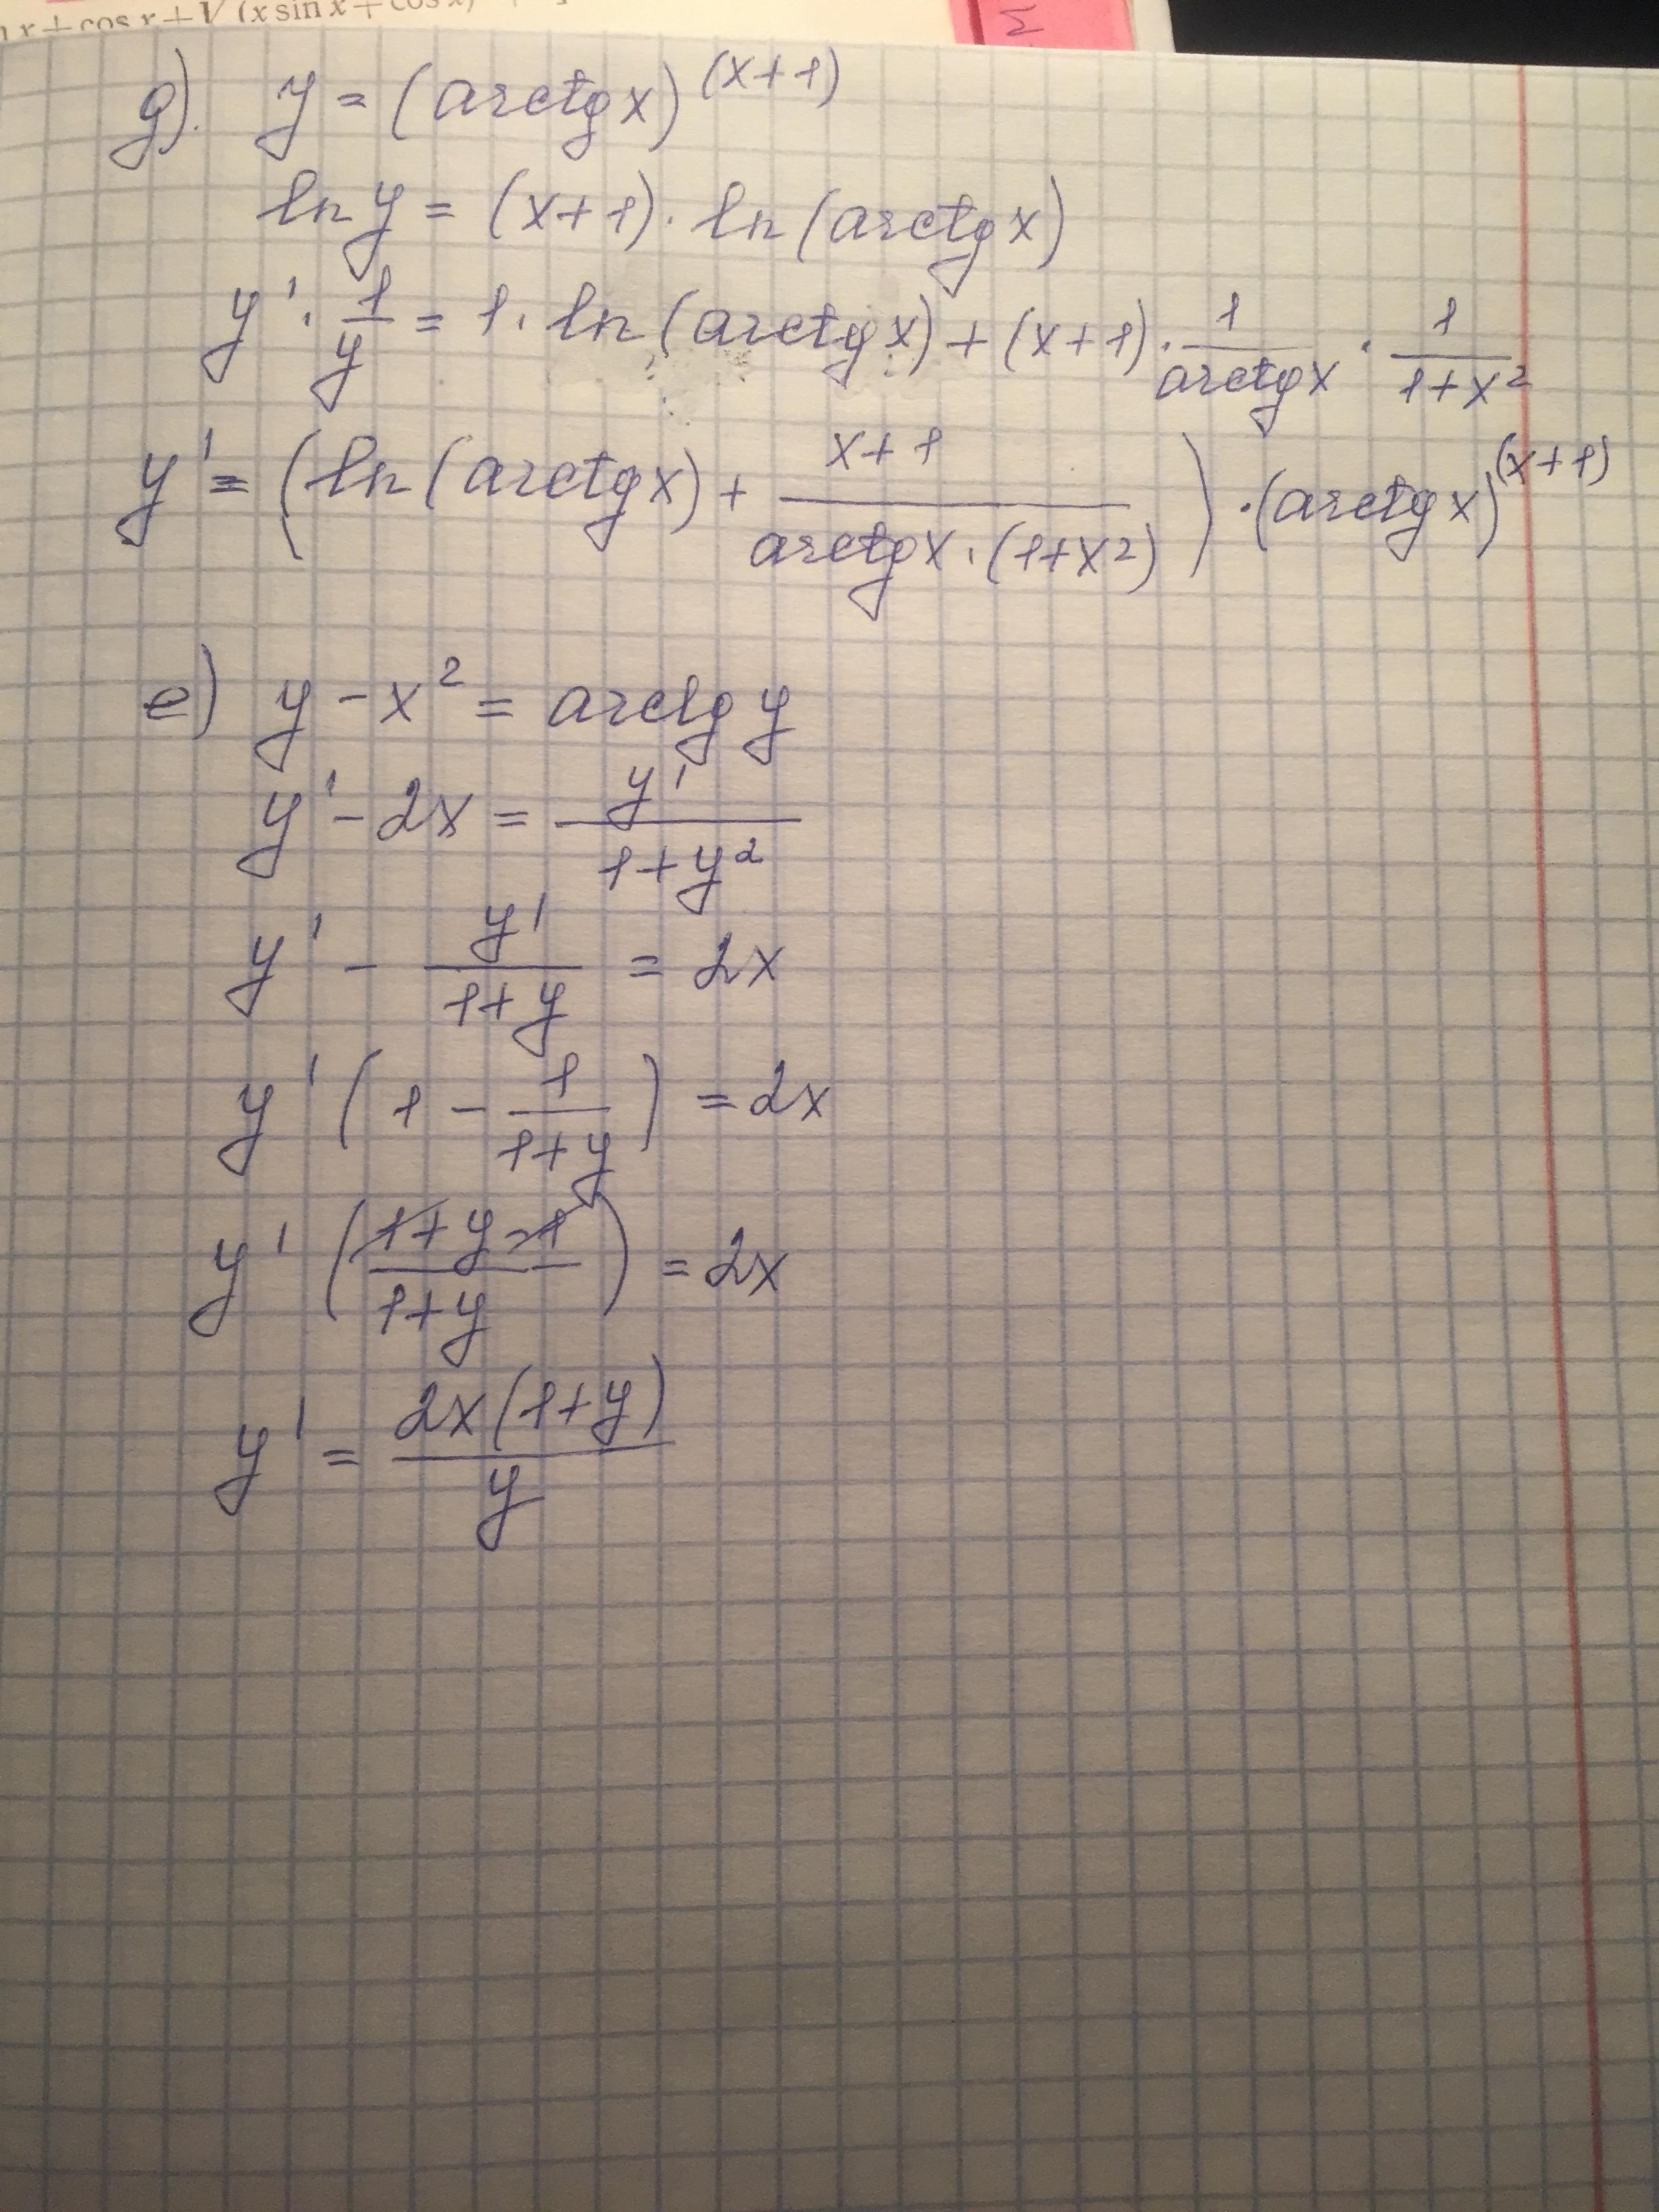 x + cos x + √(x sin x + cos x)
g). y = (arctgx)^(x+1)
ln y = (x+1) · ln (arctgx)
y' · 1/y = 1 · ln (arctgx) + (x+1) · 1/arctgx · 1/1+x²
y' = (ln (arctgx) + x+1/arctgx · (1+x²)) · (arctgx)^(x+1)
e) y - x² = arctg y
y' - 2x = y'/1+y²
y' - y'/1+y = 2x
y' (1 - 1/1+y) = 2x
y' (1+y-1/1+y) = 2x
y' = 2x(1+y)/y